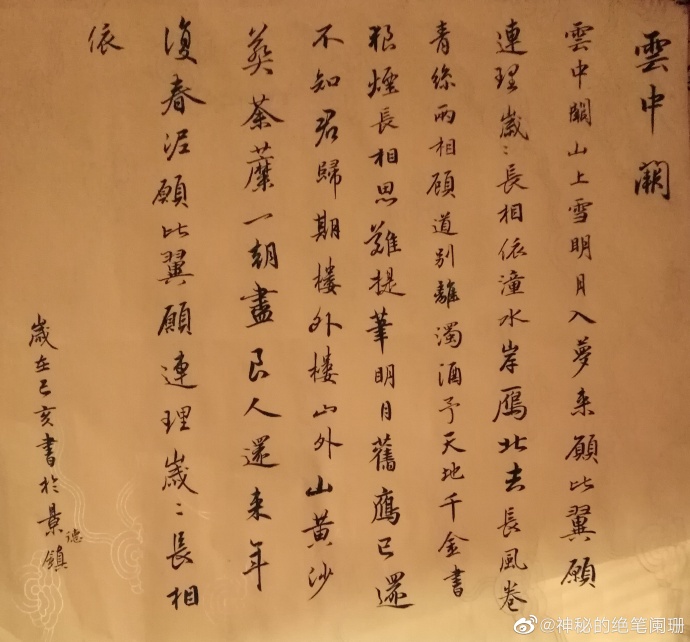 雲中闕
雲中闕山上雪明月入夢来願比翼願
連理歲〻長相依潼水岸鴈北去長風卷
青絲兩相顧道别離濁酒予天地千金書
狼煙長相思難提筆明月舊鷹已還
不知君歸期樓外樓山外山黃沙
葬荼蘼一朝盡良人還来年
復春泥願比翼願連理歲〻長相
依
歲在己亥書於景德鎮
@神秘的绝笔阑珊